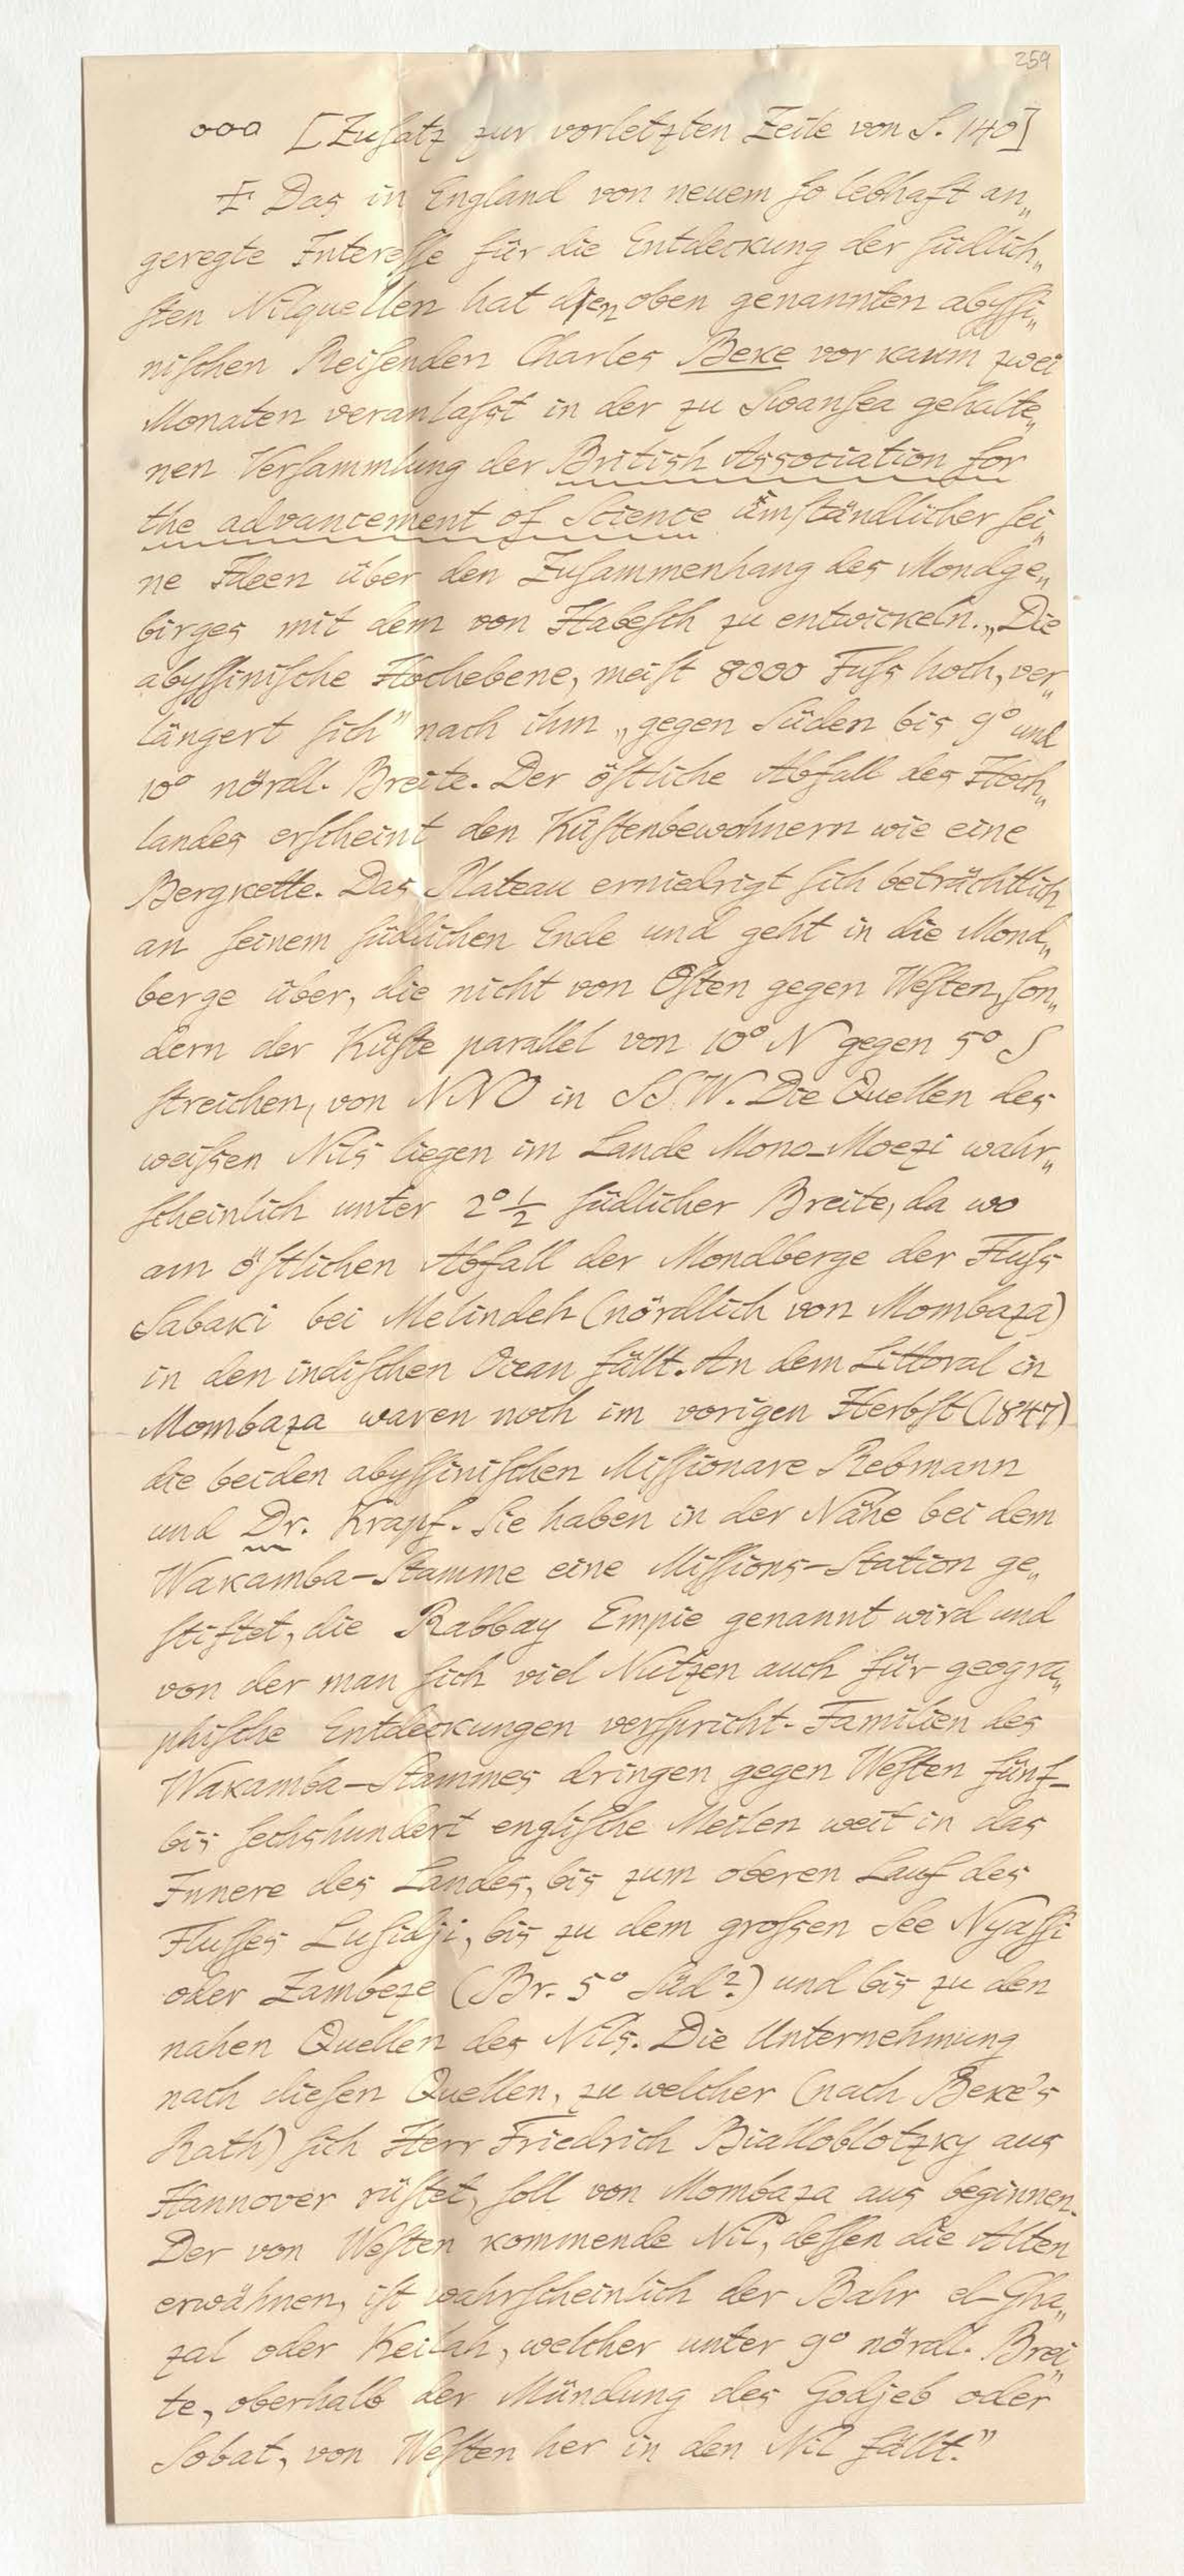 259
ooo [Zusatz zur vorletzten Zeile von S. 140]
Das in England von neuem so lebhaft an„
geregte Interesse für die Entdeckung der südlich„
sten Nilquellen hat den oben genannten abyssi„
nischen Reisenden Charles Beke vor kaum zwei
Monaten veranlasst in der zu Swansea gehalte„
nen Versammlung der British Association for
the advancement of Science umständlicher sei„
ne Ideen über den Zusammenhang des Mondge„
birges mit dem von Habesch zu entwickeln. „Die
abyssinische Hochebene, meist 8000 Fuss hoch, ver„
längert sich" nach ihm „gegen Süden bis 9° und
10° nördl. Breite. Der östliche Abfall des Hoch„
landes erscheint den Küstenbewohnern wie eine
Bergkette. Das Plateau erniedrigt sich beträchtlich
an seinem südlichen Ende und geht in die Mond„
berge über, die nicht von Osten gegen Westen, son„
dern der Küste parallel von 10° N gegen 5° S
streichen, von NNO in SSW. Die Quellen des
weissen Nils liegen im Lande Mono-Moezi wahr„
scheinlich unter 2° 1/2 südlicher Breite, da wo
am östlichen Abfall der Mondberge der Fluss
Sabaki bei Melindeh (nördlich von Mombaza)
in den indischen Ocean fällt. An dem Littoral in
Mombaza waren noch im vorigen Herbst (1847)
die beiden abyssinischen Missionare Rebmann
und Dr. Krapf. Sie haben in der Nähe bei dem
Wakamba-Stamme eine Missions-Station ge„
stiftet, die Rabbay Empie genannt wird und
von der man sich viel Nutzen auch für geogra„
phische Entdeckungen verspricht. Familien des
Wakamba-Stammes dringen gegen Westen fünf-
bis sechshundert englische Meilen weit in das
Innere des Landes, bis zum oberen Lauf des
Flusses Lusidji, bis zu dem grossen See Nyassi
oder Zambeze (Br. 5° Süd?) und bis zu den
nahen Quellen des Nils. Die Unternehmung
nach diesen Quellen, zu welcher (nach Beke's
Rath) sich Herr Friedrich Bialloblotzky aus
Hannover rüstet, soll von Mombaza aus beginnen.
Der von Westen kommende Nil, dessen die Alten
erwähnen, ist wahrscheinlich der Bahr el-Gha„
zal oder Keilah, welcher unter 9° nördl. Brei„
te, oberhalb der Mündung des Godjeb oder
Sobat, von Westen her in den Nil fällt."